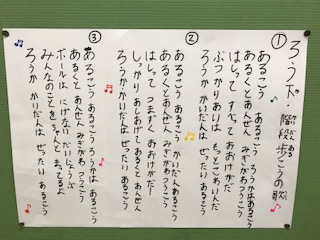 ろう下・階段 歩こうの歌
①
あるこう あるこう ろうかはあるこう
あるくとあんぜん みぎがわつうこう
はしって すべって おおけがだ
ぶつかりあいは もっとこわいんだ
ろうか かいだんは ぜったい あるこう
②
あるこう あるこう かいだんあるこう
あるくとあんぜん みぎがわつうこう
はしって つまずく おおけがだー
しっかり あしあげて あるくと あんぜん
ろうか かいだんは ぜったい あるこう
③
あるこう あるこう ろうかは あるこう
あるくと あんぜん みぎがわ つうこう
ボールは にげない だいじょうぶ
みんなのことを ちゃんと まってるよ
ろうか かいだんは ぜったい あるこう